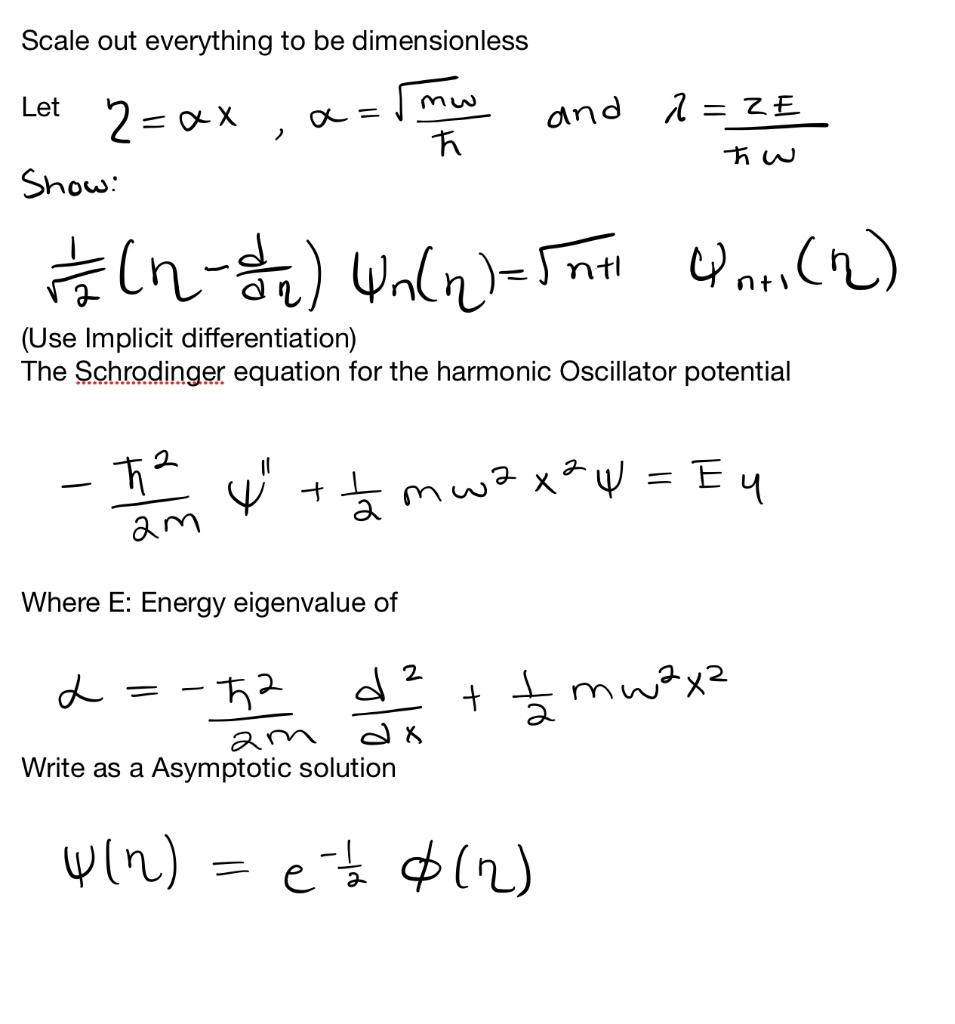 Scale out everything to be dimensionless
Let η = αx , α = √(mω/ħ) and λ = 2E/ħω
Show:
1/√2 (η - d/dη) ψn(η) = √n+1 ψn+1(η)
(Use Implicit differentiation)
The Schrodinger equation for the harmonic Oscillator potential
- ħ²/2m ψ'' + 1/2 mω²x²ψ = Eψ
Where E: Energy eigenvalue of
α = -ħ²/2m d²/dx + 1/2 mω²x²
Write as a Asymptotic solution
ψ(η) = e^(-1/2) φ(η)